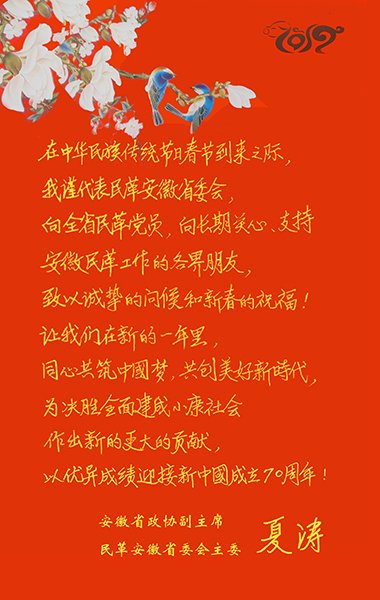 2019
在中华民族传统节日春节到来之际，
我谨代表民革安徽省委会，
向全省民革党员，向长期关心、支持
安徽民革工作的各界朋友，
致以诚挚的问候和新春的祝福！
让我们在新的一年里，
同心共筑中國梦，共创美好新時代，
为决胜全面建成小康社会
作出新的更大的贡献，
以优异成绩迎接新中國成立70周年！
安徽省政协副主席
民革安徽省委会主委
夏涛